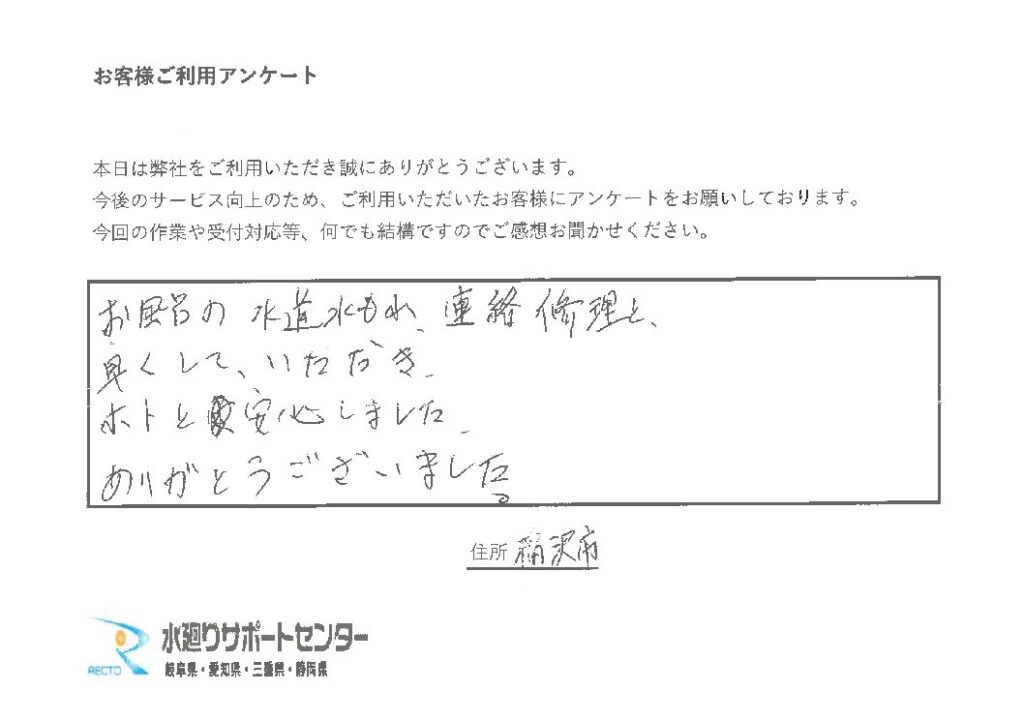 お客様ご利用アンケート
本日は弊社をご利用いただき誠にありがとうございます。
今後のサービス向上のため、ご利用いただいたお客様にアンケートをお願いしております。
今回の作業や受付対応等、何でも結構ですのでご感想お聞かせください。
お風呂の水道水もれ、連絡修理と、
早くして、いただき、
ホトと安心しました。
ありがとうございました。
住所 稲沢市
水廻りサポートセンター
RECTO 岐阜県・愛知県・三重県・静岡県